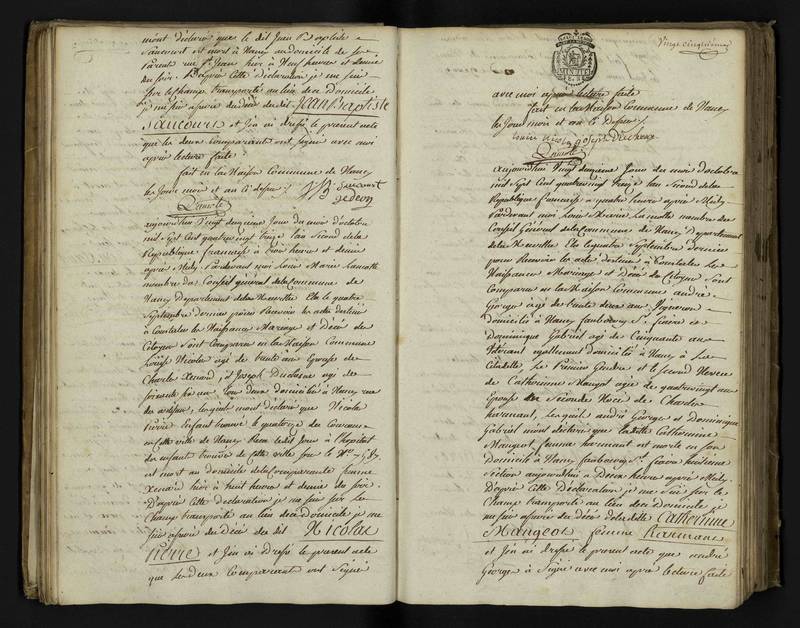 mont déclaré que le dit Jean Baptiste
Saucourt est mort à Nancy au domicile de ses
Parent rue St Jean hier à Neuf heures et demie
du soir. D'après cette déclaration je me suis
sur le champ transporté au lieu dece domicile
je me suis assuré du décès du dit Jean Baptiste
Saucourt et j'en ai dressé le présent acte
que les deux comparants ont signé avec moi
après lecture faite
fait en la Maison Commune de Nancy
les jour mois et an ci dessus
aujourdhui Vingt deuxieme Jour du mois d'octobre
mil Sept Cent quatrevingt treize l'an Second dela
République française à trois heures et demie
après Midy Pardevant moi Louis Marie Lamotte
membre du Conseil general dela Commune de
Nancy Departement dela Meurthe Elu le quatre
Septembre dernier pour Recevoir les actes destinés
à Constater les Naissances Mariages et Décès des
Citoyens Sont Comparus en la Maison Commune
Louise Nicolas agée de trente ans Epouse de
Charle , et Joseph Duchesne agé de
soixante ans tous deux domiciliés à Nancy rue
des , lesquels mont déclaré que Nicolas
Pierre Enfant trouvé le quatorze du Courant
en cette ville de Nancy ledit Jour à l'hopital
des enfants trouvés de cette ville sous le No
est mort au domicile dela Comparante femme
hier à huit heures et demie du soir.
D'après cette declaration je me suis sur le
Champ transporté au lieu dece domicile je me
suis assuré du décès du dit Nicolas
Pierre et j'en ai dressé le present acte
que les deux comparants ont Signé
Vingt cinquieme
avec moi après lecture faite
fait en la Maison Commune de Nancy
les Jour mois et an Ci Dessus
Louise Nicolas Joseph Duchesne
aujourdhui Vingt deuxieme Jour du mois d'octobre
mil Sept Cent quatrevingt Treize l'an Second dela
République francaise a quatre heures après Midy
Pardevant moi Louis Marie Lamotte membre du
Conseil Général dela Commune de Nancy Departement
dela Meurthe Elu lequatre Septembre dernier
pour Recevoir les actes destinés à Constater les
Naissances Mariages et Décès des Citoyens Sont
Comparus en la Maison Commune andré
George agé de trente deux ans Vigneron
Domicilié à Nancy faubourg St fiacre et
Dominique Gabriel agé de Cinquante ans
egallement Domicilié à Nancy à la
Citadelle Le Premier Gendre et le second Neveu
de Catherinne Mangeot agée de quatrevingt ans
Epouse en Secondes Noces de Charles
harmant, lesquels andré George et Dominique
Gabriel mont déclaré que ladite Catherinne
Mangeot femme harmant est morte en son
Domicile à Nancy faubourg St fiacre huitieme
Section aujourdhui à Deux heures après Midy.
D'après Cette Déclaration je me suis sur le
Champ transporté au lieu dece domicile je
me suis assuré du Décès deladite Catherinne
Mangeot femme harmant
et j'en ai dressé le présent acte que andré
George à Signé avec moi après lecture faite